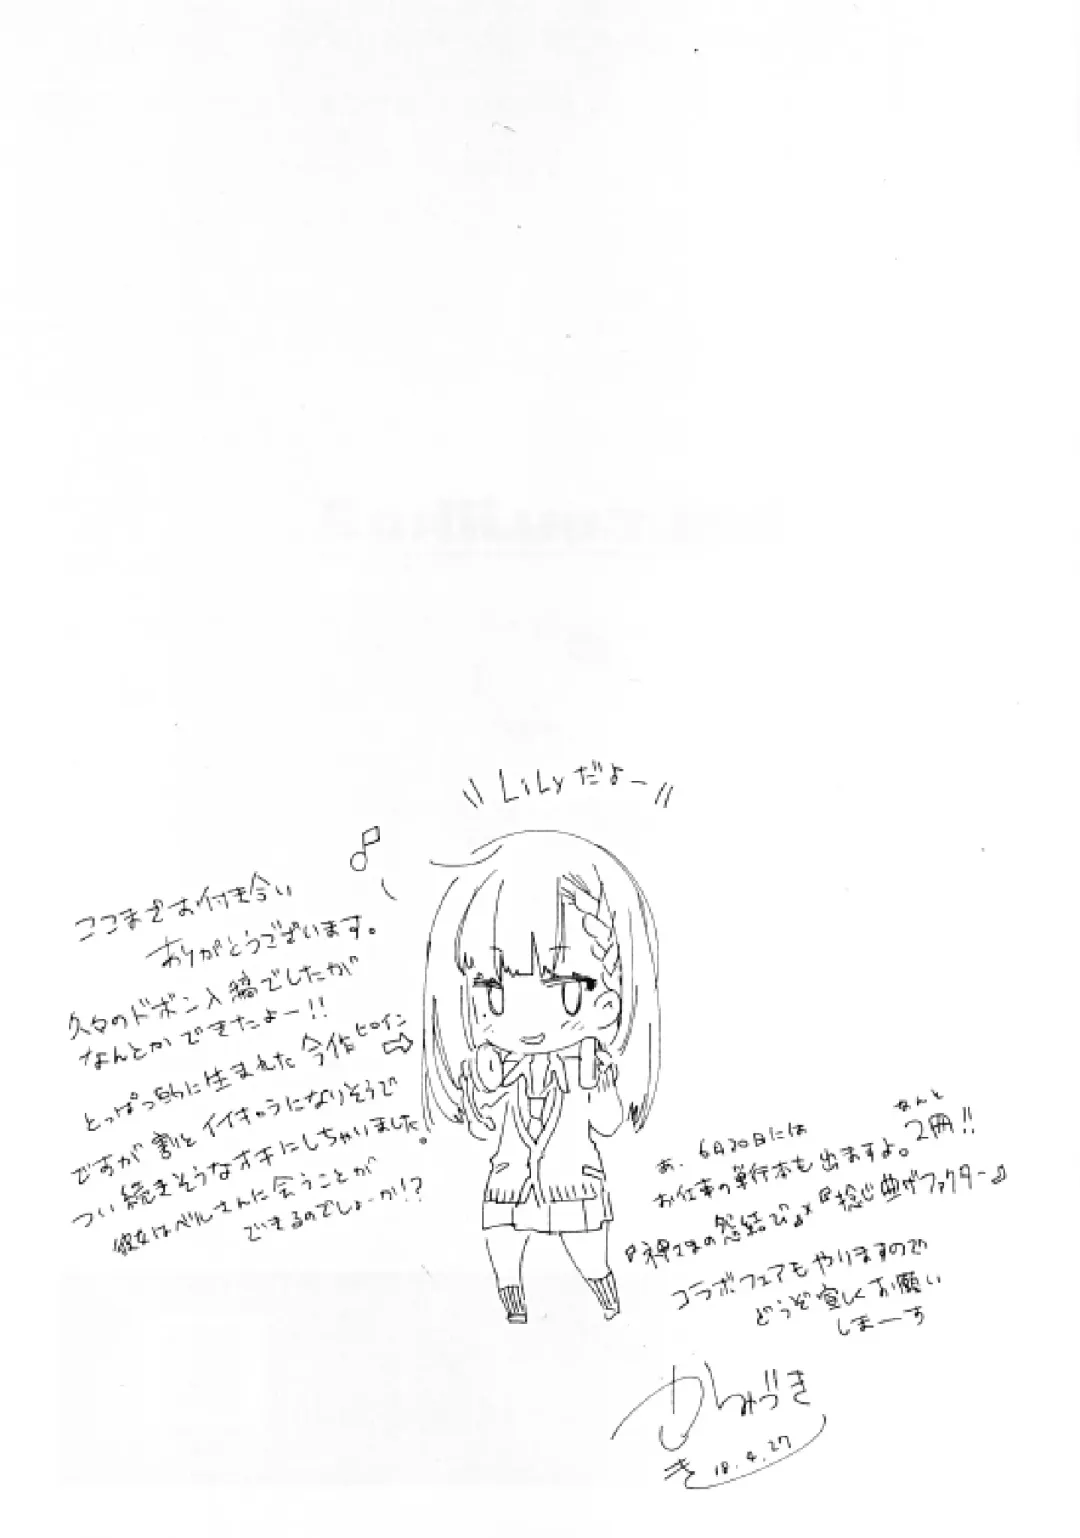 LiLyだよー
ここまでお付き合い
ありがとうございます。
久々のドボン入稿でしたが
なんとかできたよー!!
とっぱつ的に生まれた今作ヒロイン
ですが割とイイキャラになりそうで
つい続きそうなオチにしちゃいました。
彼女はベルさんに会うことが
できるのでしょーか!?
あ、6月30日には
お仕事の単行本も出ますよ。なんと2冊!!
『神さまの怨結び』×『捻じ曲げファクター』
コラボフェアもやりますので
どうぞ宜しくお願い
しまーす
かつゆづき
18.4.27